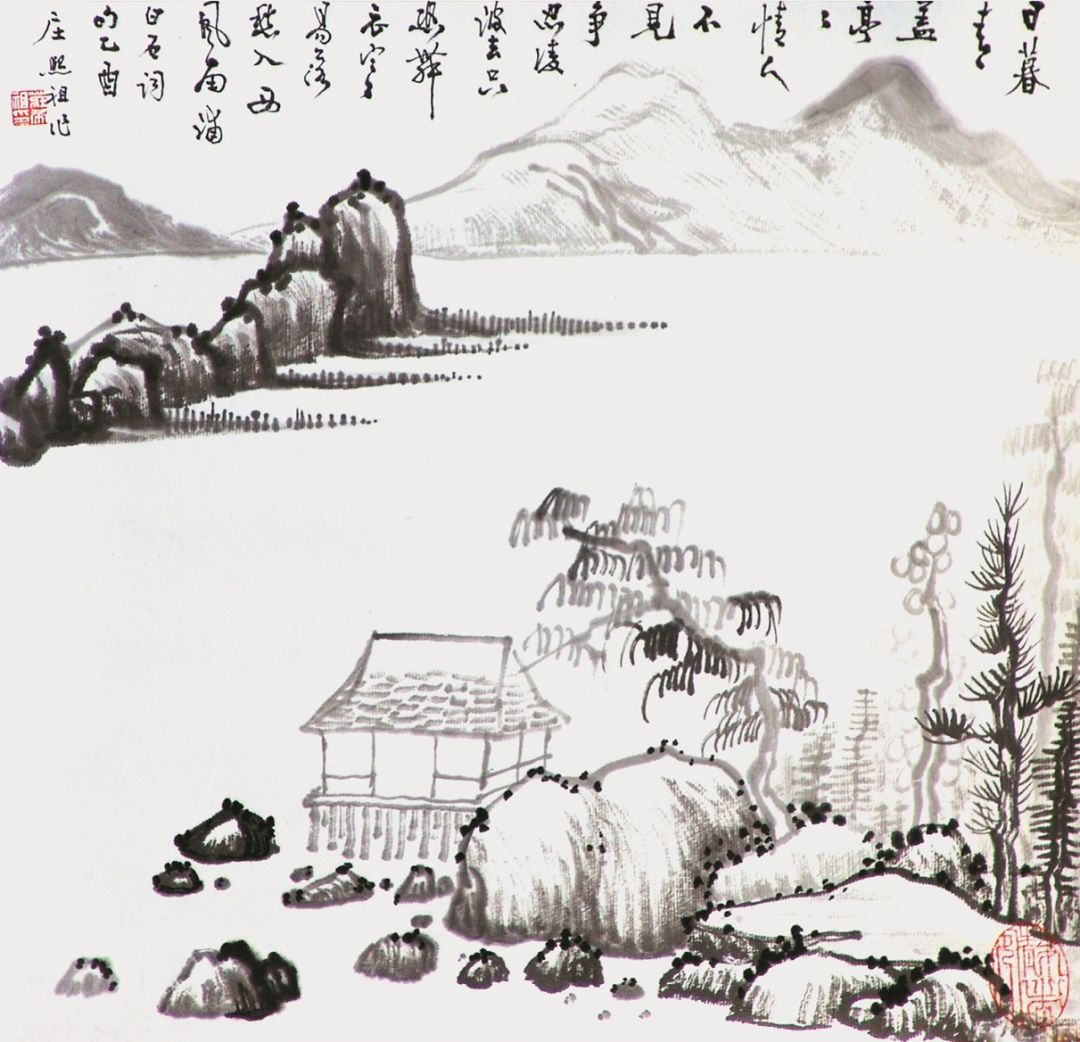 日暮
青
盖
亭
々
情人
不
見
争
忍凌
波去只
恐舞
衣寒
易落
愁入西
風南浦
白石词
句乙酉
庄熙祖作